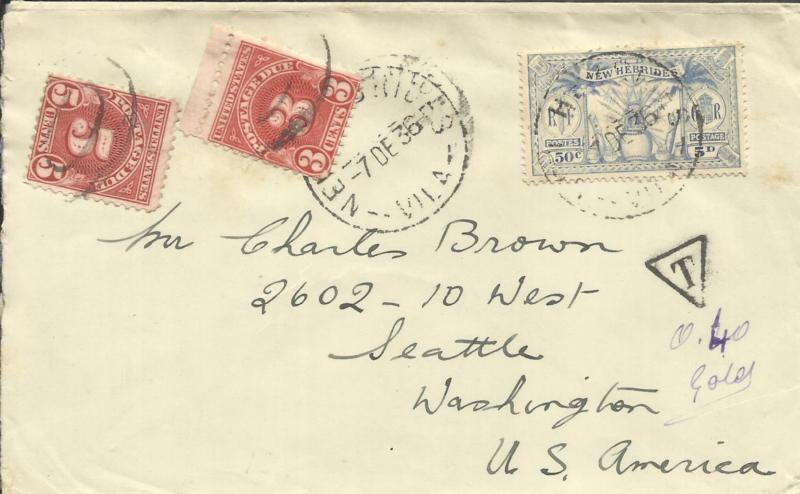 UNITED STATES
POSTAGE DUE
5
5 CENTS 5
UNITED STATES
POSTAGE DUE
3
3 CENTS 3
-7 DE 36
VILA
NEW HEBRIDES
RF
GR
POSTES
POSTAGE
50c
5D
7 DE 36
VILA
T
Mr Charles Brown
2602-10 West
Seattle
Washington
U. S. America
0.40
Gold